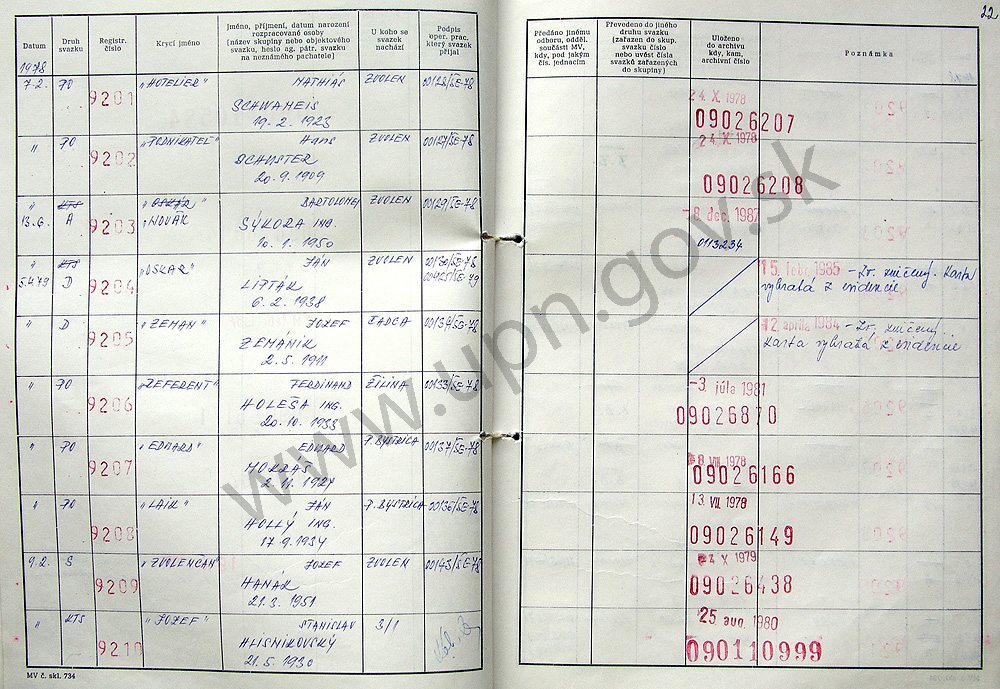 22
Datum
Druh
svazku
Registr.
číslo
Krycí jméno
Jméno, příjmení, datum narození
rozpracované osoby
(název skupiny nebo objektového
svazku, heslo ag. pátr. svazku
na neznámého pachatele)
U koho se
svazek
nachází
Podpis
oper. prac.
který svazek
přijal
Předáno jinému
odboru, odděl.
součásti MV,
kdy, pod jakým
čís. jednacím
Převedeno do jiného
druhu svazku
(zařazen do skup.
svazku číslo
nebo uvést čísla
svazků zařazených
do skupiny)
Uloženo
do archívu
kdy, kam,
archivní číslo
Poznámka
1978
7.2. PO 9201 „HOTELIER" MATHIAS ZVOLEN 00128/SE-78 24. X. 1978
SCHWAMEIS 09026207
19.2.1923
" PO 9202 „PODNIKATEĽ" Hans ZVOLEN 00127/SE-78 24. X. 1978
SCHUSTER 09026208
20.9.1909
" KTS 9203 „OSKÁR" BARTOLOMEJ ZVOLEN 00129/SE-78 -8. dec. 1987
13.6. A „NOVÁK SÝKORA ING. 0113234
10.1.1950
" KTS 9204 „OSKAR" JÁN ZVOLEN 00130/SE-78 15. febr. 1985 - Zv. zničený. Karta
5.4.79 D LIPTÁK vybratá z evidencie
6.2.1938
" D 9205 „ZEMAN" JOZEF ČADCA 00134/SE-78 12. apríla 1984 - Zv. zničený.
ZEMÁNIK Karta vybratá z evidencie
2.5.1911
" PO 9206 „REFERENT" FERDINAND ŽILINA 00133/SE-78 -3. júla 1981
HOLEŠA ING. 09026870
20.10.1933
" PO 9207 „EDUARD" EDUARD P. BYSTRICA 00137/SE-78 8. VIII. 1978
MOKRAS 09026166
2.11.1927
" PO 9208 „LAIK" JÁN P. BYSTRICA 00136/SE-78 13. VII. 1978
HOLLÝ ING. 09026149
17.9.1934
9.2. S 9209 „ZVOLENČAN" JOZEF ZVOLEN 00143/SE-78 X 1979
HANÁK 09026438
21.3.1951
" KTS 9210 „JOZEF" STANISLAV 3/1 25. aug. 1980
HLISNIKOVSKÝ 090110999
21.5.1930
MV č. skl. 734
www.upn.gov.sk